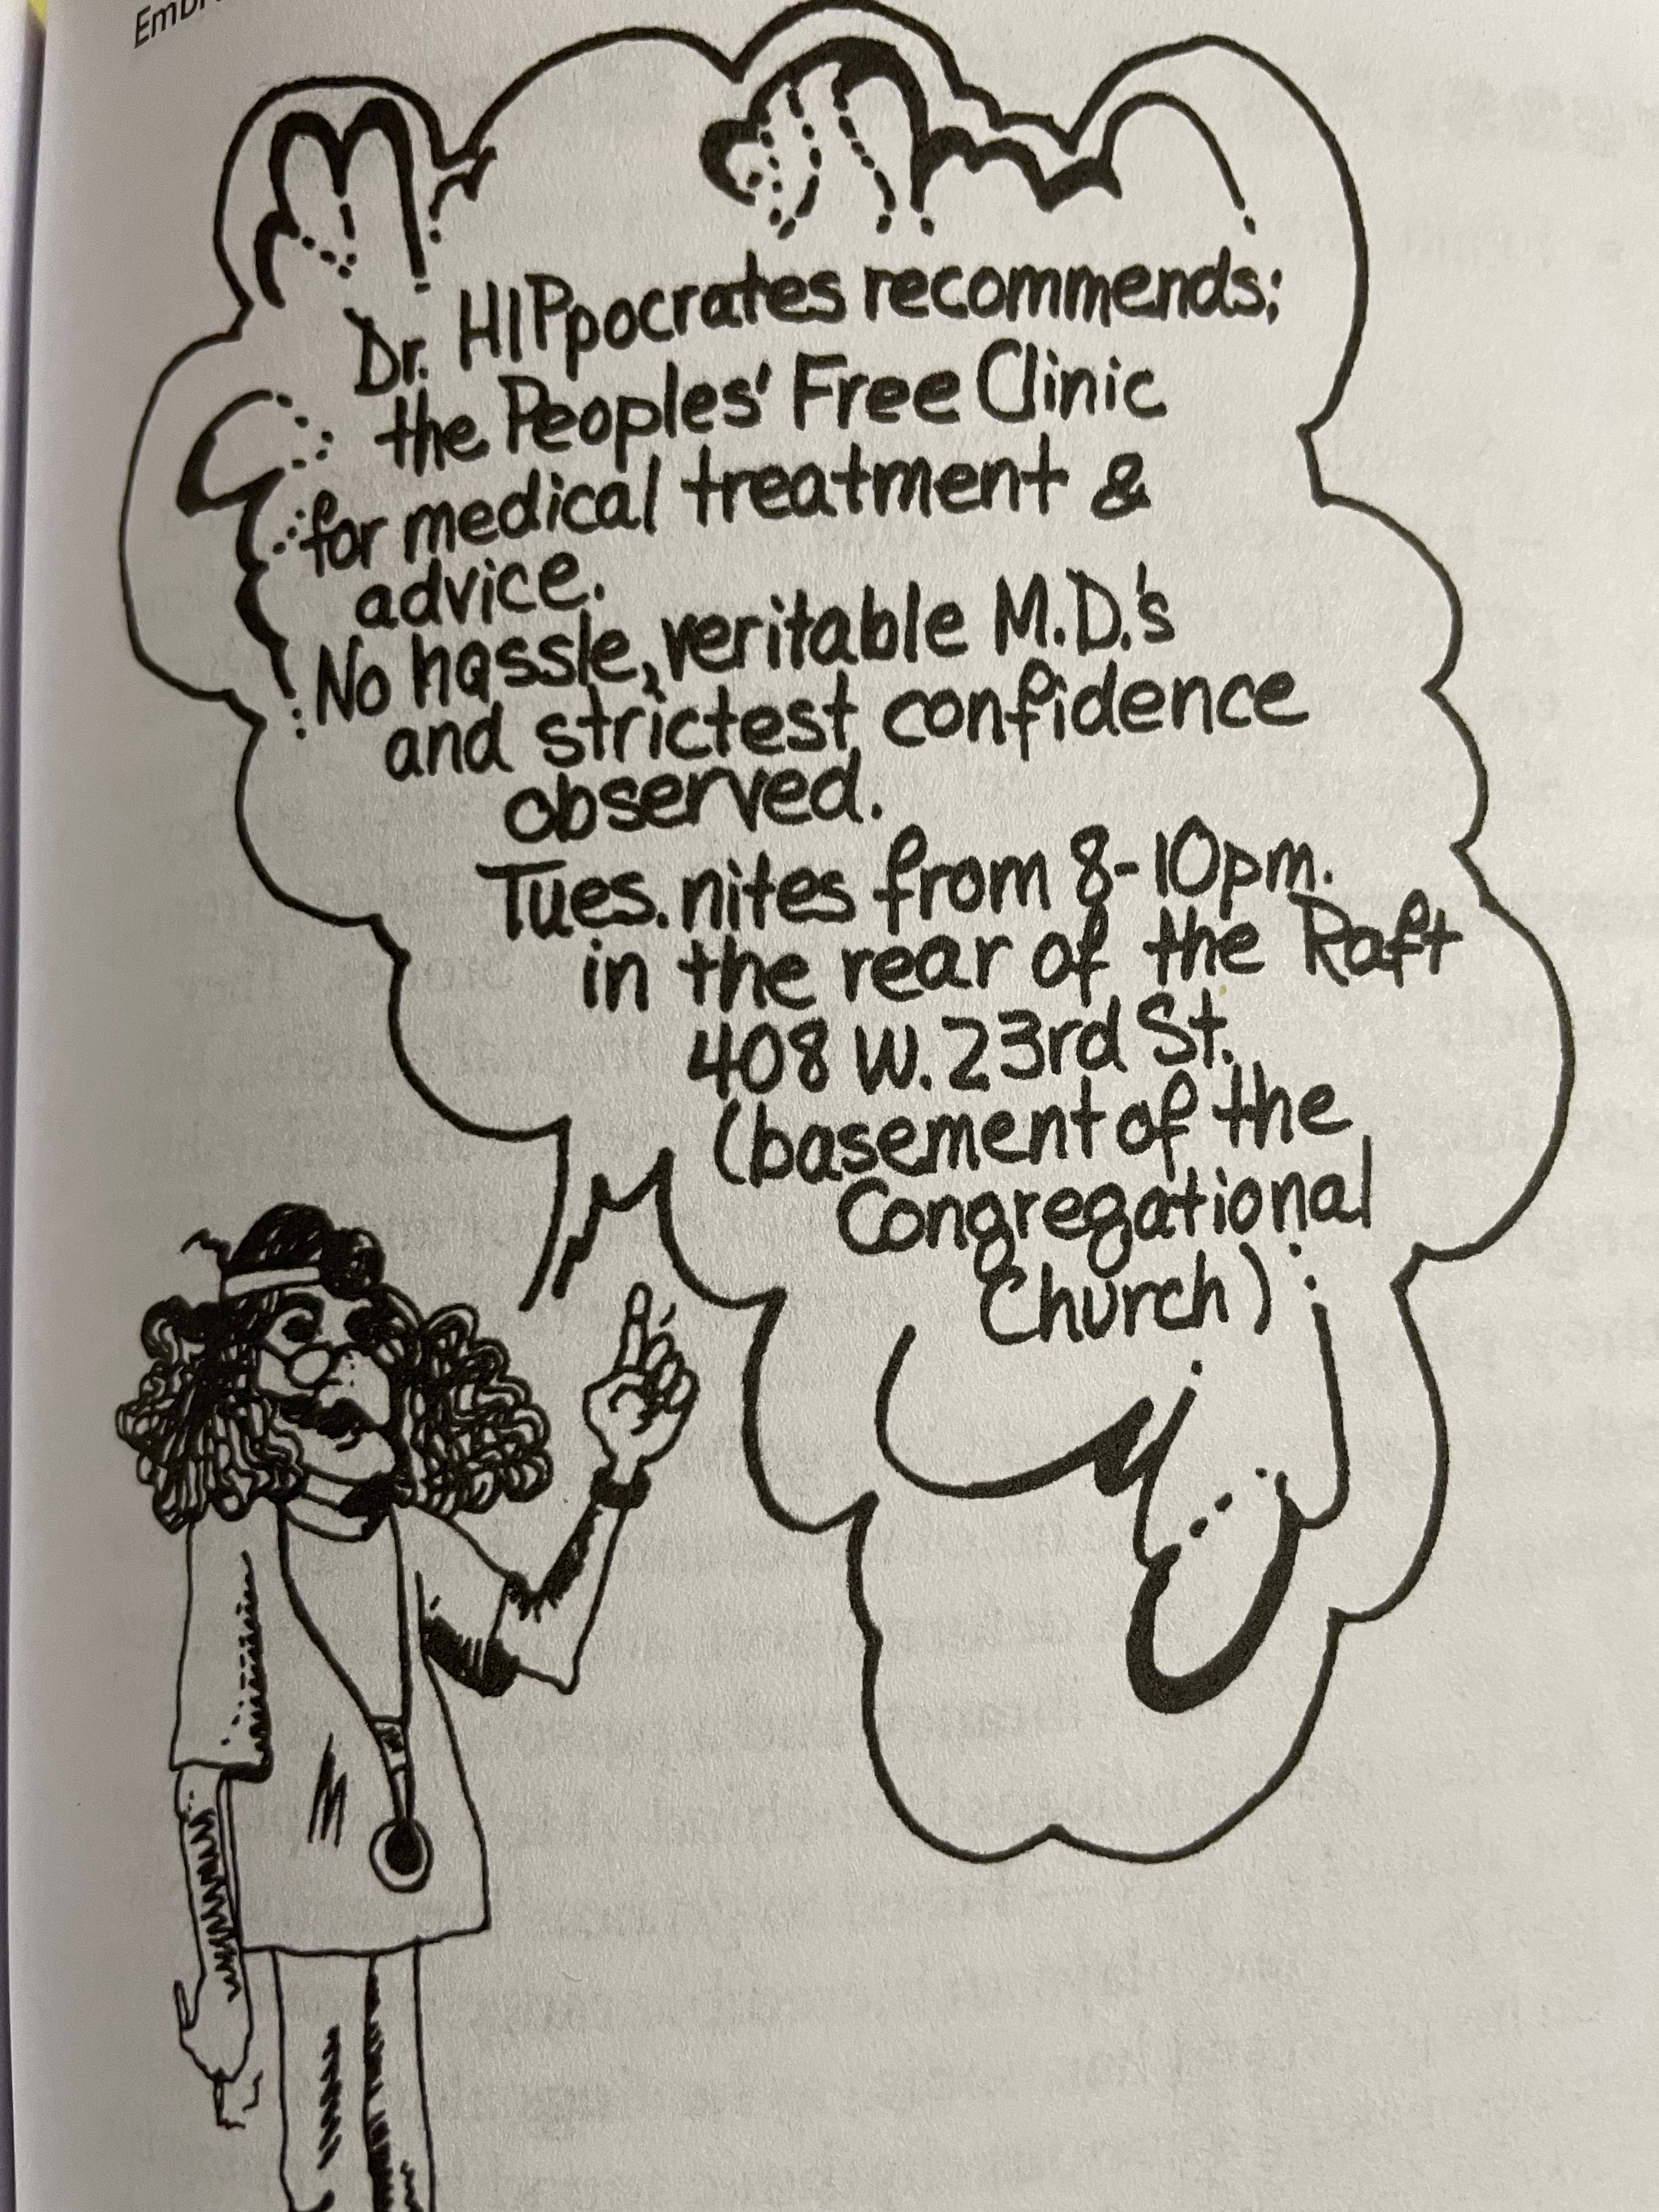 Dr. HIPpocrates recommends:
the Peoples' Free Clinic
for medical treatment &
advice.
No hassle, veritable M.D.'s
and strictest confidence
observed.
Tues. nites from 8-10pm.
in the rear of the Raft
408 W. 23rd St.
(basement of the
Congregational
Church)